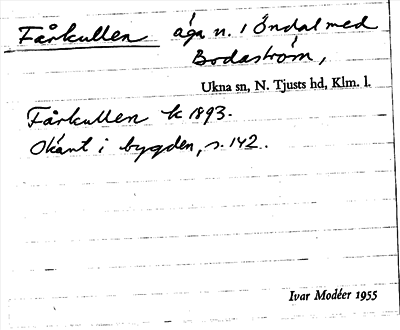 Fårkullen äga n. 1 Öndal med
Bodaström,
Ukna sn, N. Tjusts hd, Klm. l.
Fårkullen k 1893.
Okänt i bygden, s. 142.
Ivar Modéer 1955